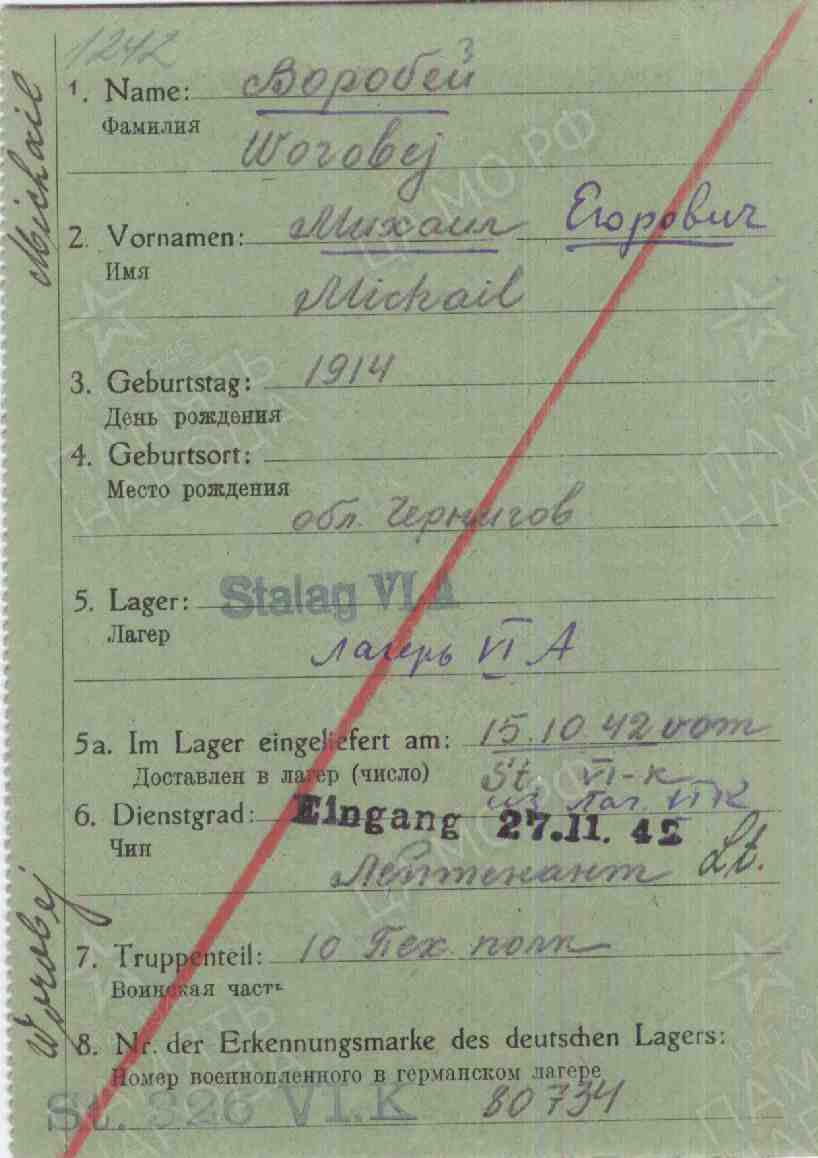 1242
3
1. Name: Воробей
Фамилия
Worobej
2. Vornamen: Михаил Егорович
Имя
Michail
3. Geburtstag: 1914
День рождения
4. Geburtsort:
Место рождения
обл. Чернигов
5. Lager: Stalag VI A
Лагер
лагерь VI A
5a. Im Lager eingeliefert am: 15.10.42 vom
Доставлен в лагер (число) St. VI-K
из лаг. VI K
6. Dienstgrad: Eingang 27.11.42
Чин
Лейтенант Lt.
7. Truppenteil: 10 Пех. полк
Воинская часть
8. Nr. der Erkennungsmarke des deutschen Lagers:
Номер военнопленного в германском лагере
St. 326 VI.K 80734
Michail
Worobej
ЦАМО РФ
ПАМЯТЬ
НАРОДА